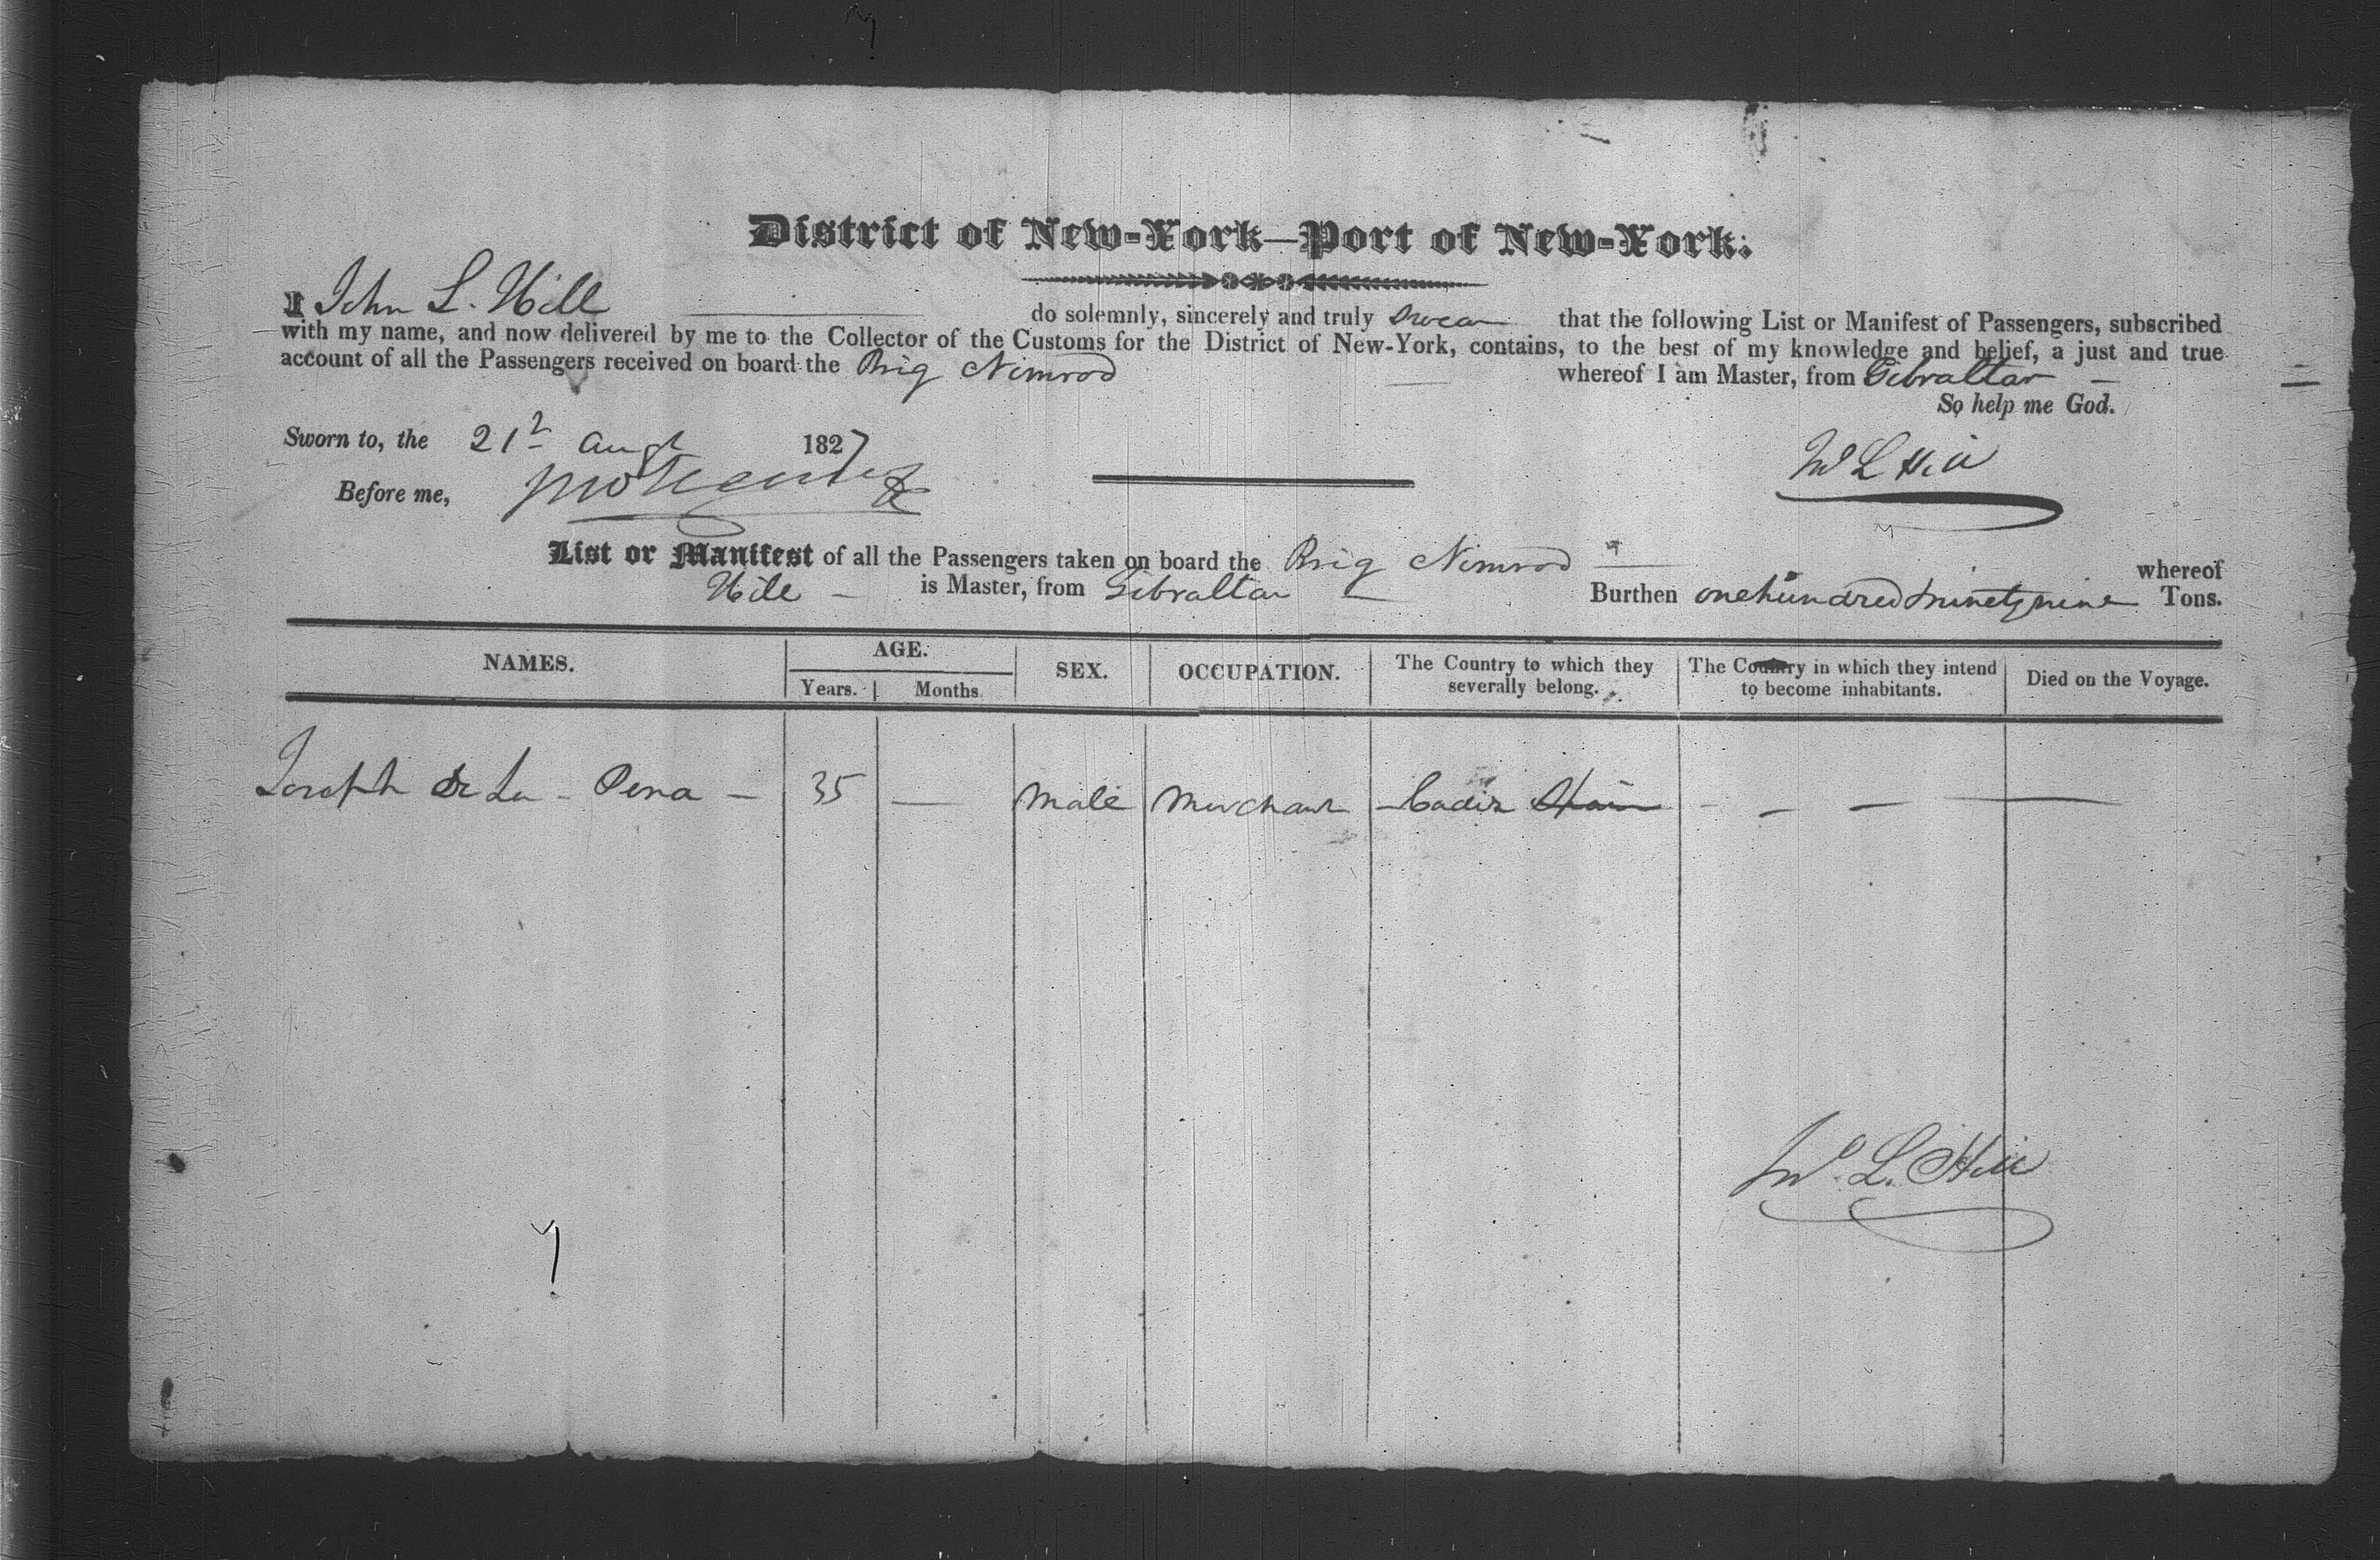 District of New-York—Port of New-York:
I John L. Hill do solemnly, sincerely and truly swear that the following List or Manifest of Passengers, subscribed
with my name, and now delivered by me to the Collector of the Customs for the District of New-York, contains, to the best of my knowledge and belief, a just and true
account of all the Passengers received on board the Brig Nimrod whereof I am Master, from Gibraltar
So help me God.
Sworn to, the 21 Augt 1827
Before me,
Jno L Hill
List or Manifest of all the Passengers taken on board the Brig Nimrod whereof
Hill is Master, from Gibraltar Burthen one hundred ninety nine Tons.
NAMES. AGE. SEX. OCCUPATION. The Country to which they severally belong. The Country in which they intend to become inhabitants. Died on the Voyage.
Years. Months
Joseph de La - Pena — 35 — Male Merchant Cadiz Spain - — — —
Jno. L. Hill